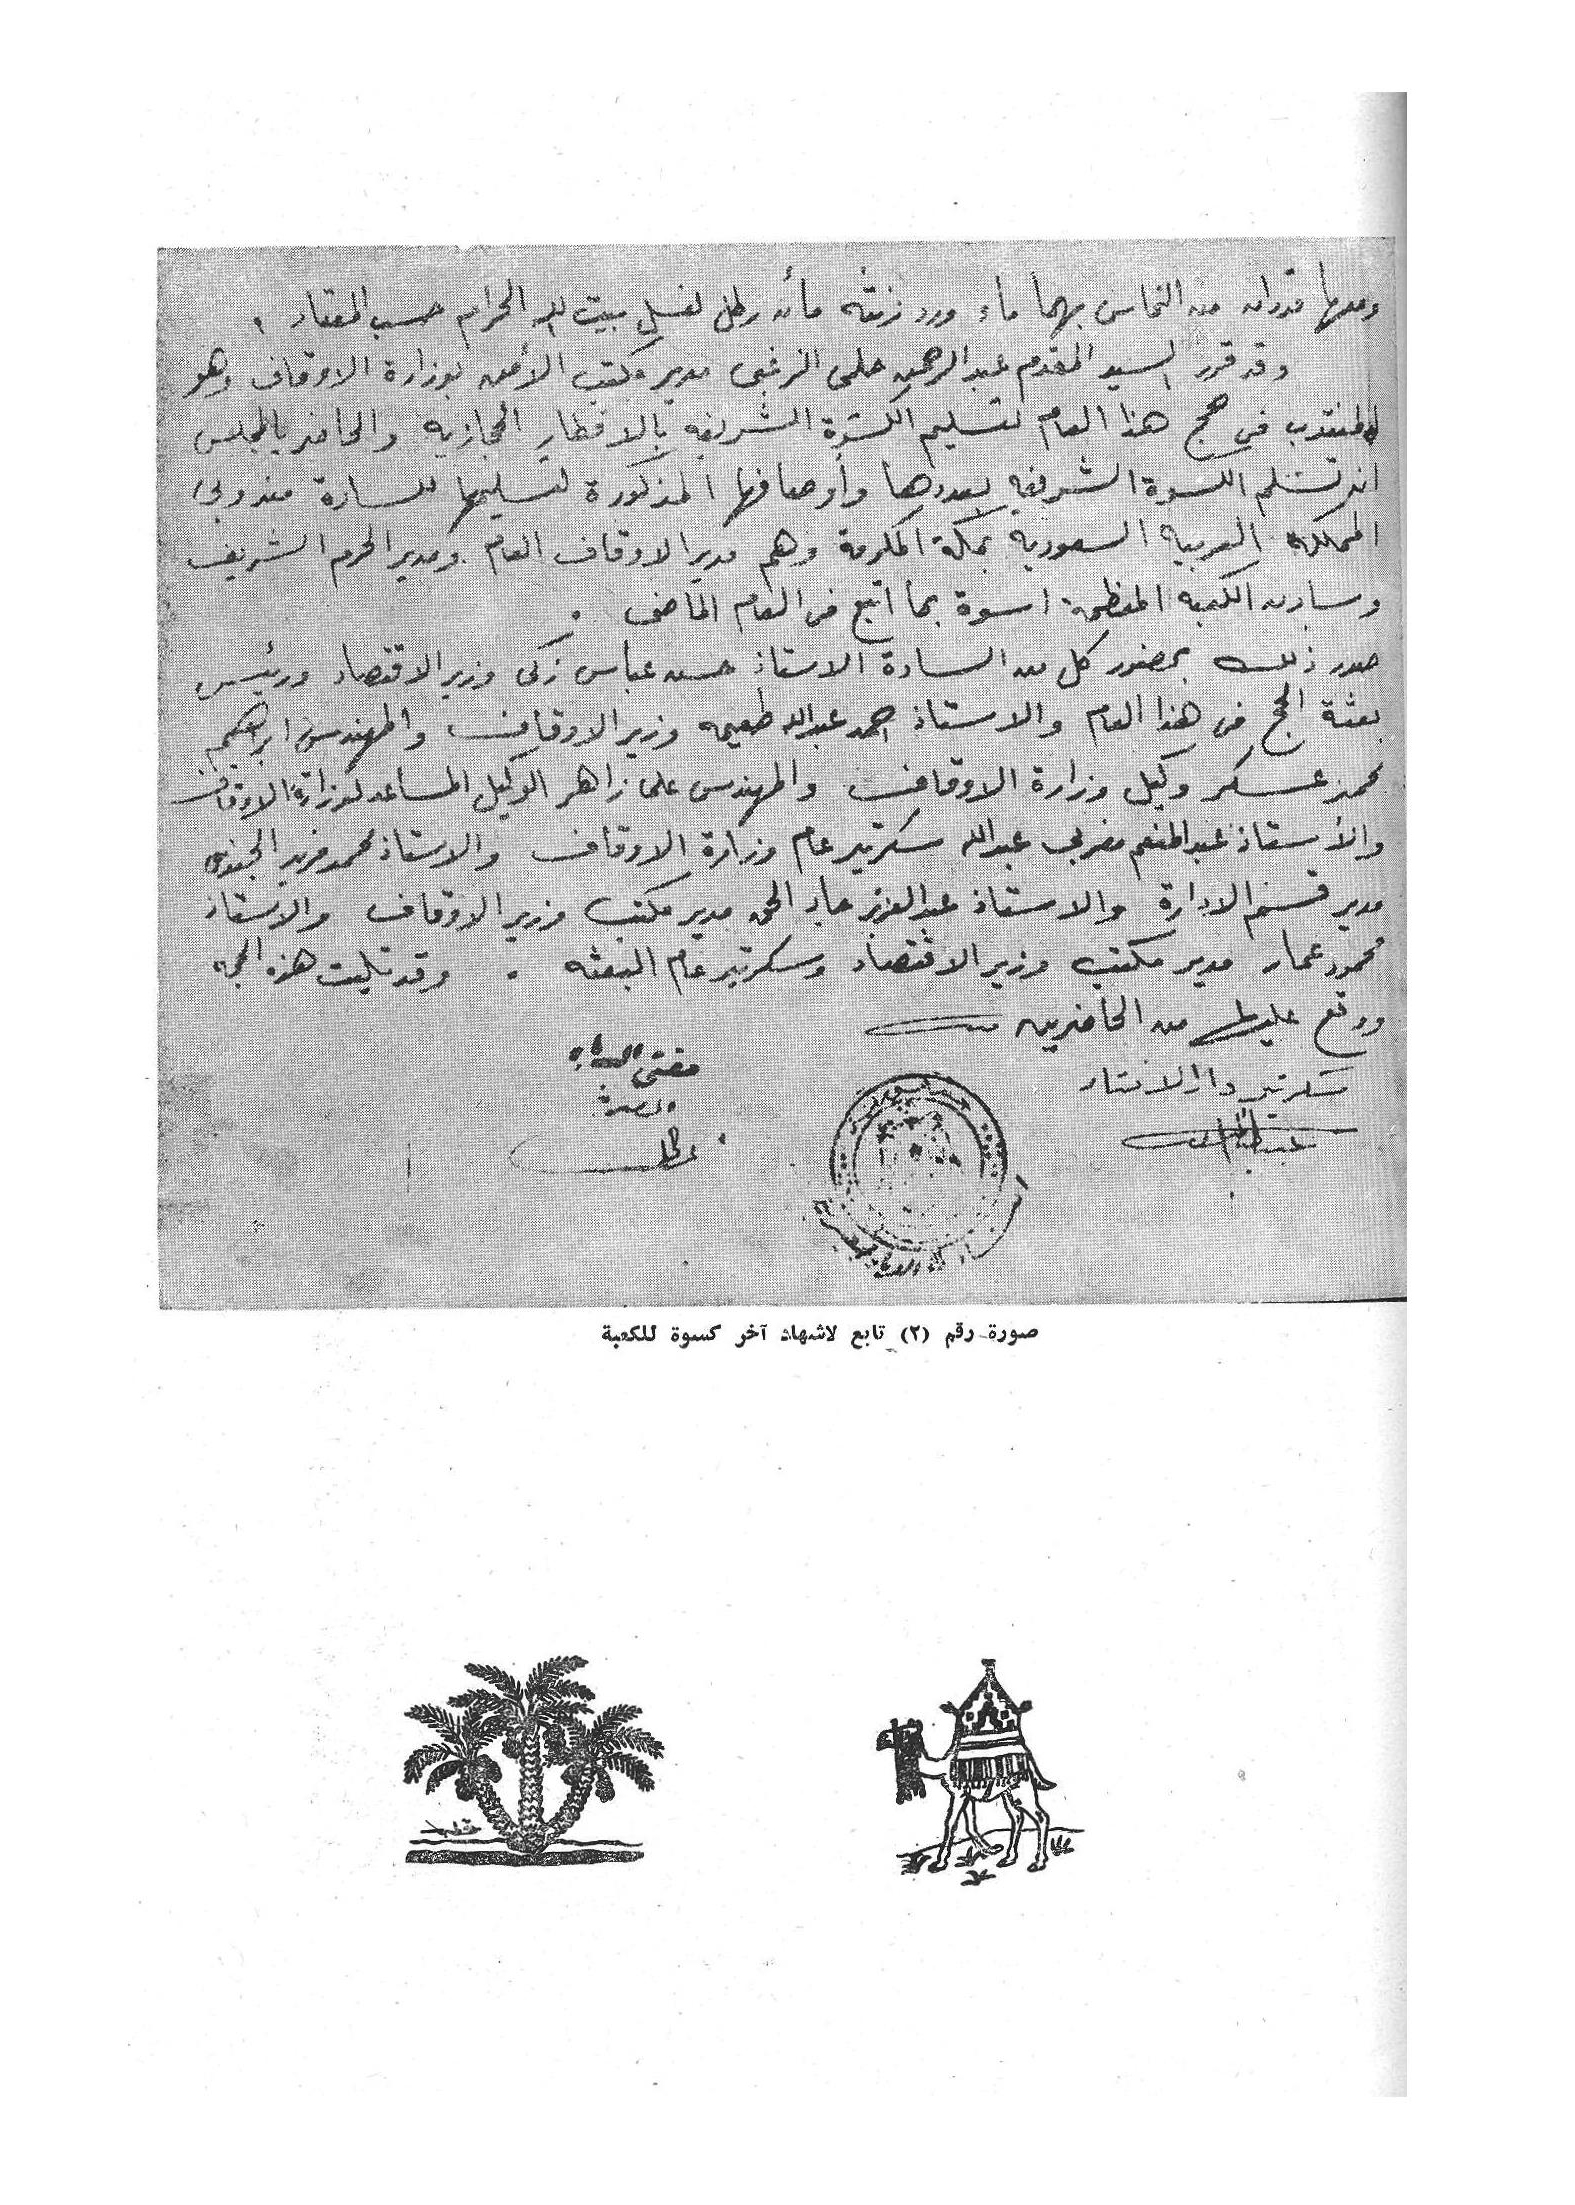 ومعها قدران من النحاس بهما ماء ورد زنته مائة رطل لغسل بيت الله الحرام حسب المعتاد .
وقد قرر السيد المقدم عبد الرحمن حلمى الزغبى مدير مكتب الأمن بوزارة الاوقاف وهو
المنتدب فى حج هذا العام لتسليم الكسوة الشريفة بالاقطار الحجازية والحاضر بالمجلس
انه تسلم الكسوة الشريفة بعددها وأوصافها المذكورة لتسليمها للسادة مندوبى
المملكة العربية السعودية بمكة المكرمة وهم مدير الاوقاف العام ومدير الحرم الشريف
وسادن الكعبة المعظمة اسوة بما اتبع فى العام الماضى .
صدر ذلك بحضور كل من السادة الاستاذ حسن عباس زكى وزير الاقتصاد ورئيس
بعثة الحج فى هذا العام والاستاذ احمد عبد الله طعيمه وزير الاوقاف والمهندس ابراهيم
محمد عسكر وكيل وزارة الاوقاف والمهندس على زاهر الوكيل المساعد لوزارة الاوقاف
والأستاذ عبد المنعم مغربى عبد الله سكرتير عام وزارة الاوقاف والاستاذ محمد فريد الجندى
مدير قسم الادارة والاستاذ عبد العزيز جاد الحق مدير مكتب وزير الاوقاف والاستاذ
محمود عمار مدير مكتب وزير الاقتصاد وسكرتير عام البعثه . وقد تليت هذه الحجه
ووقع عليها من الحاضرين
سكرتير دار الافتاء
مفتى
صورة رقم (٢) تابع لاشهاد آخر كسوة للكعبة